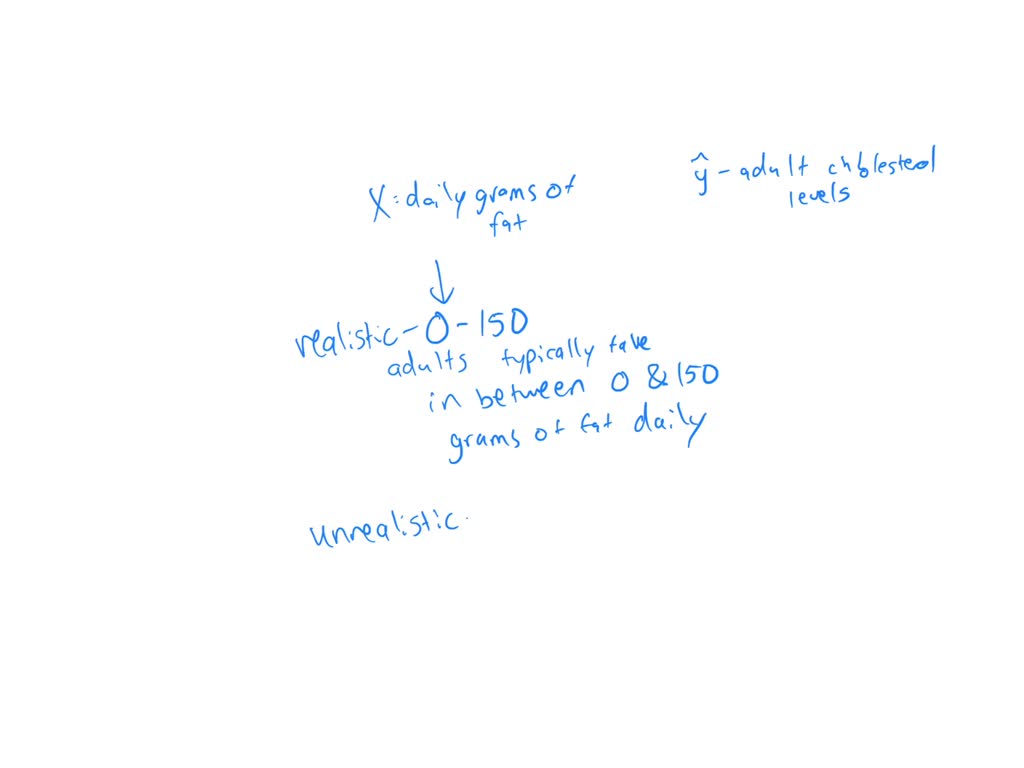 X: daily grams of
fat
ŷ - adult cholesteol
levels
realistic - 0 - 150
adults typically take
in between 0 & 150
grams of fat daily
unrealistic